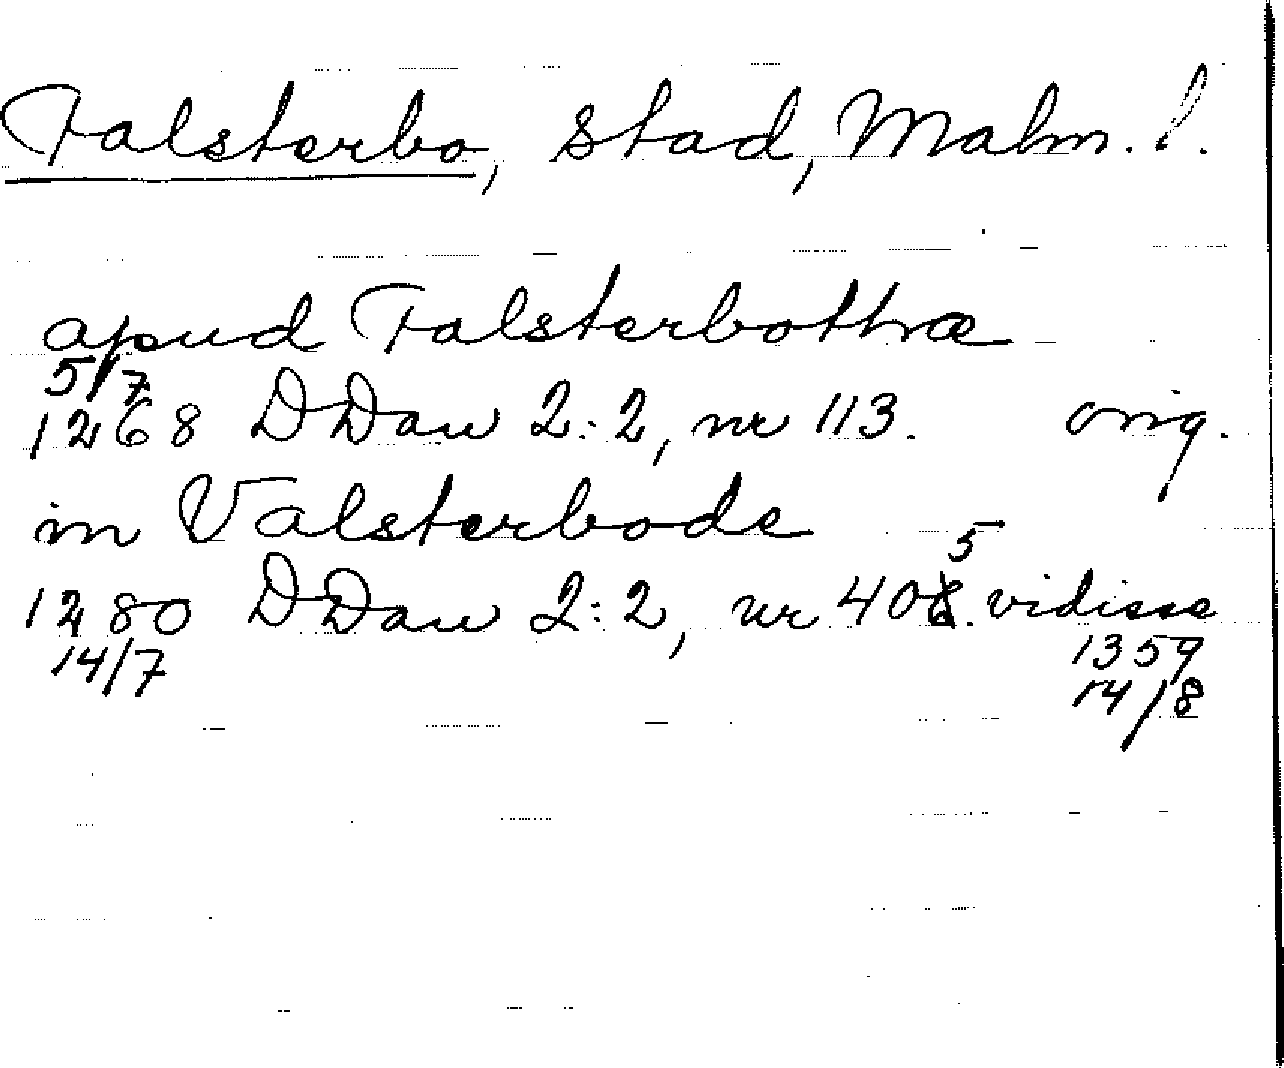 Falsterbo, stad, Malm. l.
apud Falsterbothæ
5/7
1268 DDan 2:2, nr 113. orig.
in Valsterbode
5
1280 DDan 2:2, nr 408. vidisse
14/7 1359
14/8